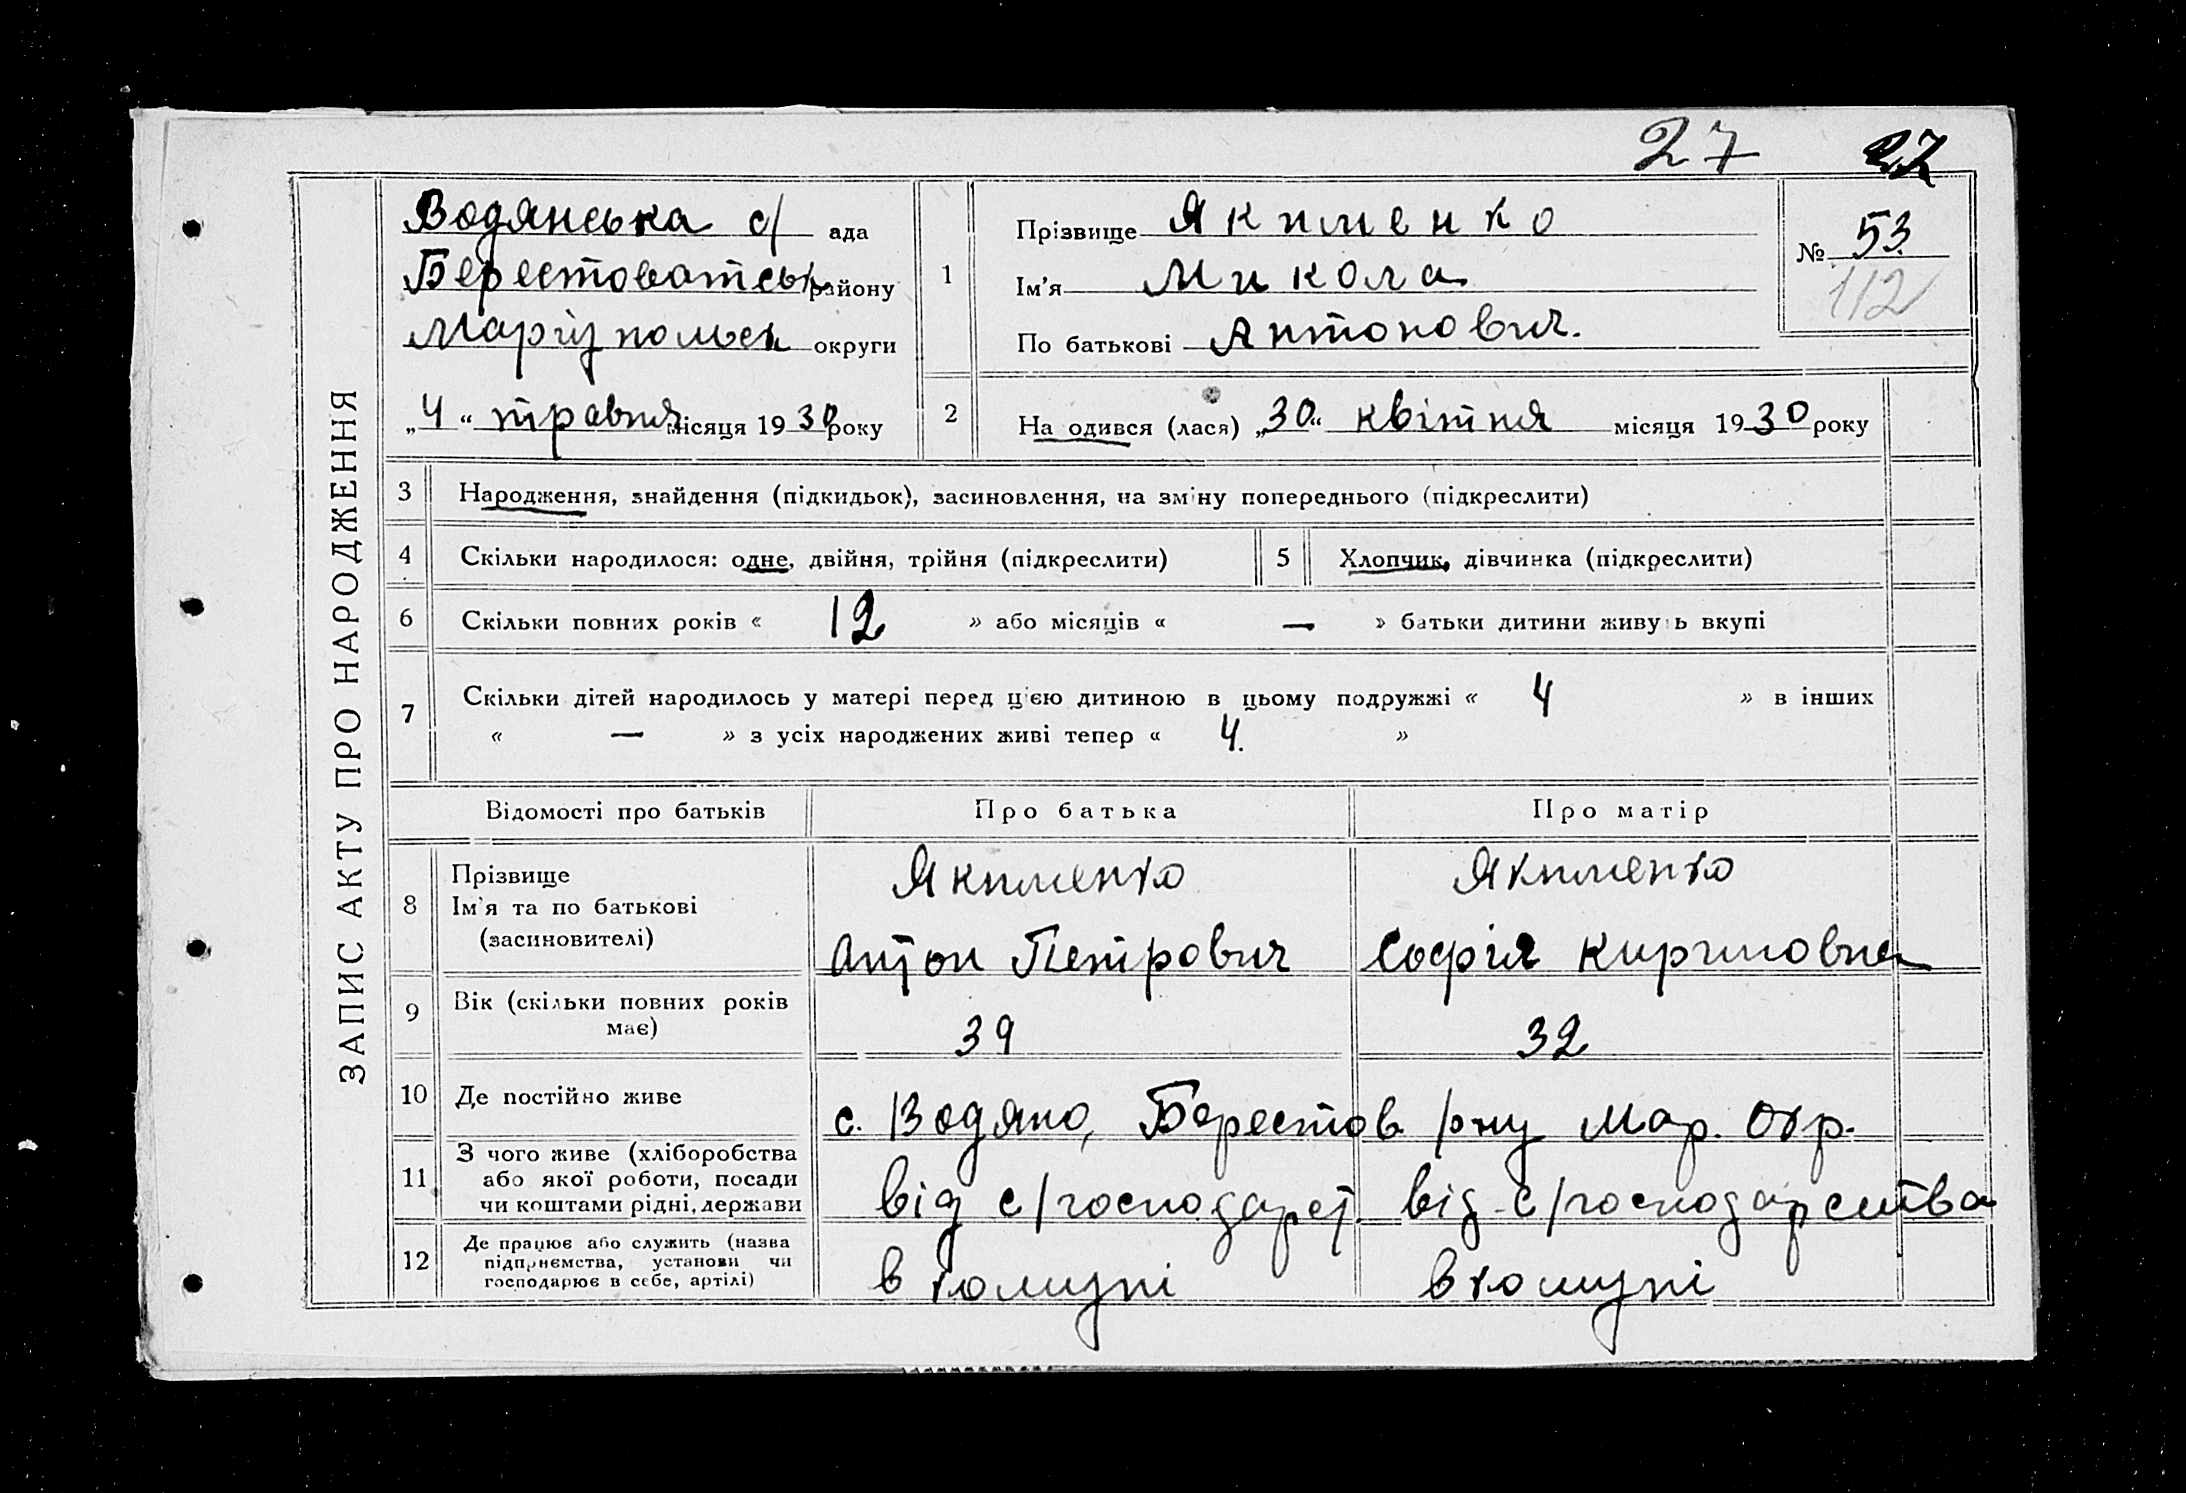 27 27
ЗАПИС АКТУ ПРО НАРОДЖЕННЯ
Водянська с/ ада
Берестоватськ району
Маріупольськ округи
„4“ травня місяця 1930 року
1 Прізвище Якименко
Ім’я Микола
По батькові Антонович.
№ 53.
112
2 На одився (лася) „30“ квітня місяця 1930 року
3 Народження, знайдення (підкидьок), засиновлення, на зміну попереднього (підкреслити)
4 Скільки народилося: одне, двійня, трійня (підкреслити) 5 Хлопчик, дівчинка (підкреслити)
6 Скільки повних років « 12 » або місяців « — » батьки дитини живуть вкупі
7 Скільки дітей народилось у матері перед цією дитиною в цьому подружжі « 4 » в інших
« — » з усіх народжених живі тепер « 4. »
Відомості про батьків Про батька Про матір
8 Прізвище
Ім’я та по батькові
(засиновителі)
Якименко
Антон Петрович
Якименко
Софія
9 Вік (скільки повних років
має)
39 32
10 Де постійно живе
с. Водяно, Берестов р/ну Мар. Окр.
11 З чого живе (хліборобства
або якої роботи, посади
чи коштами рідні, держави
від с/господарст. від с/господарства
12 Де працює або служить (назва
підприємства, установи чи
господарює в себе, артілі)
в комуні в комуні